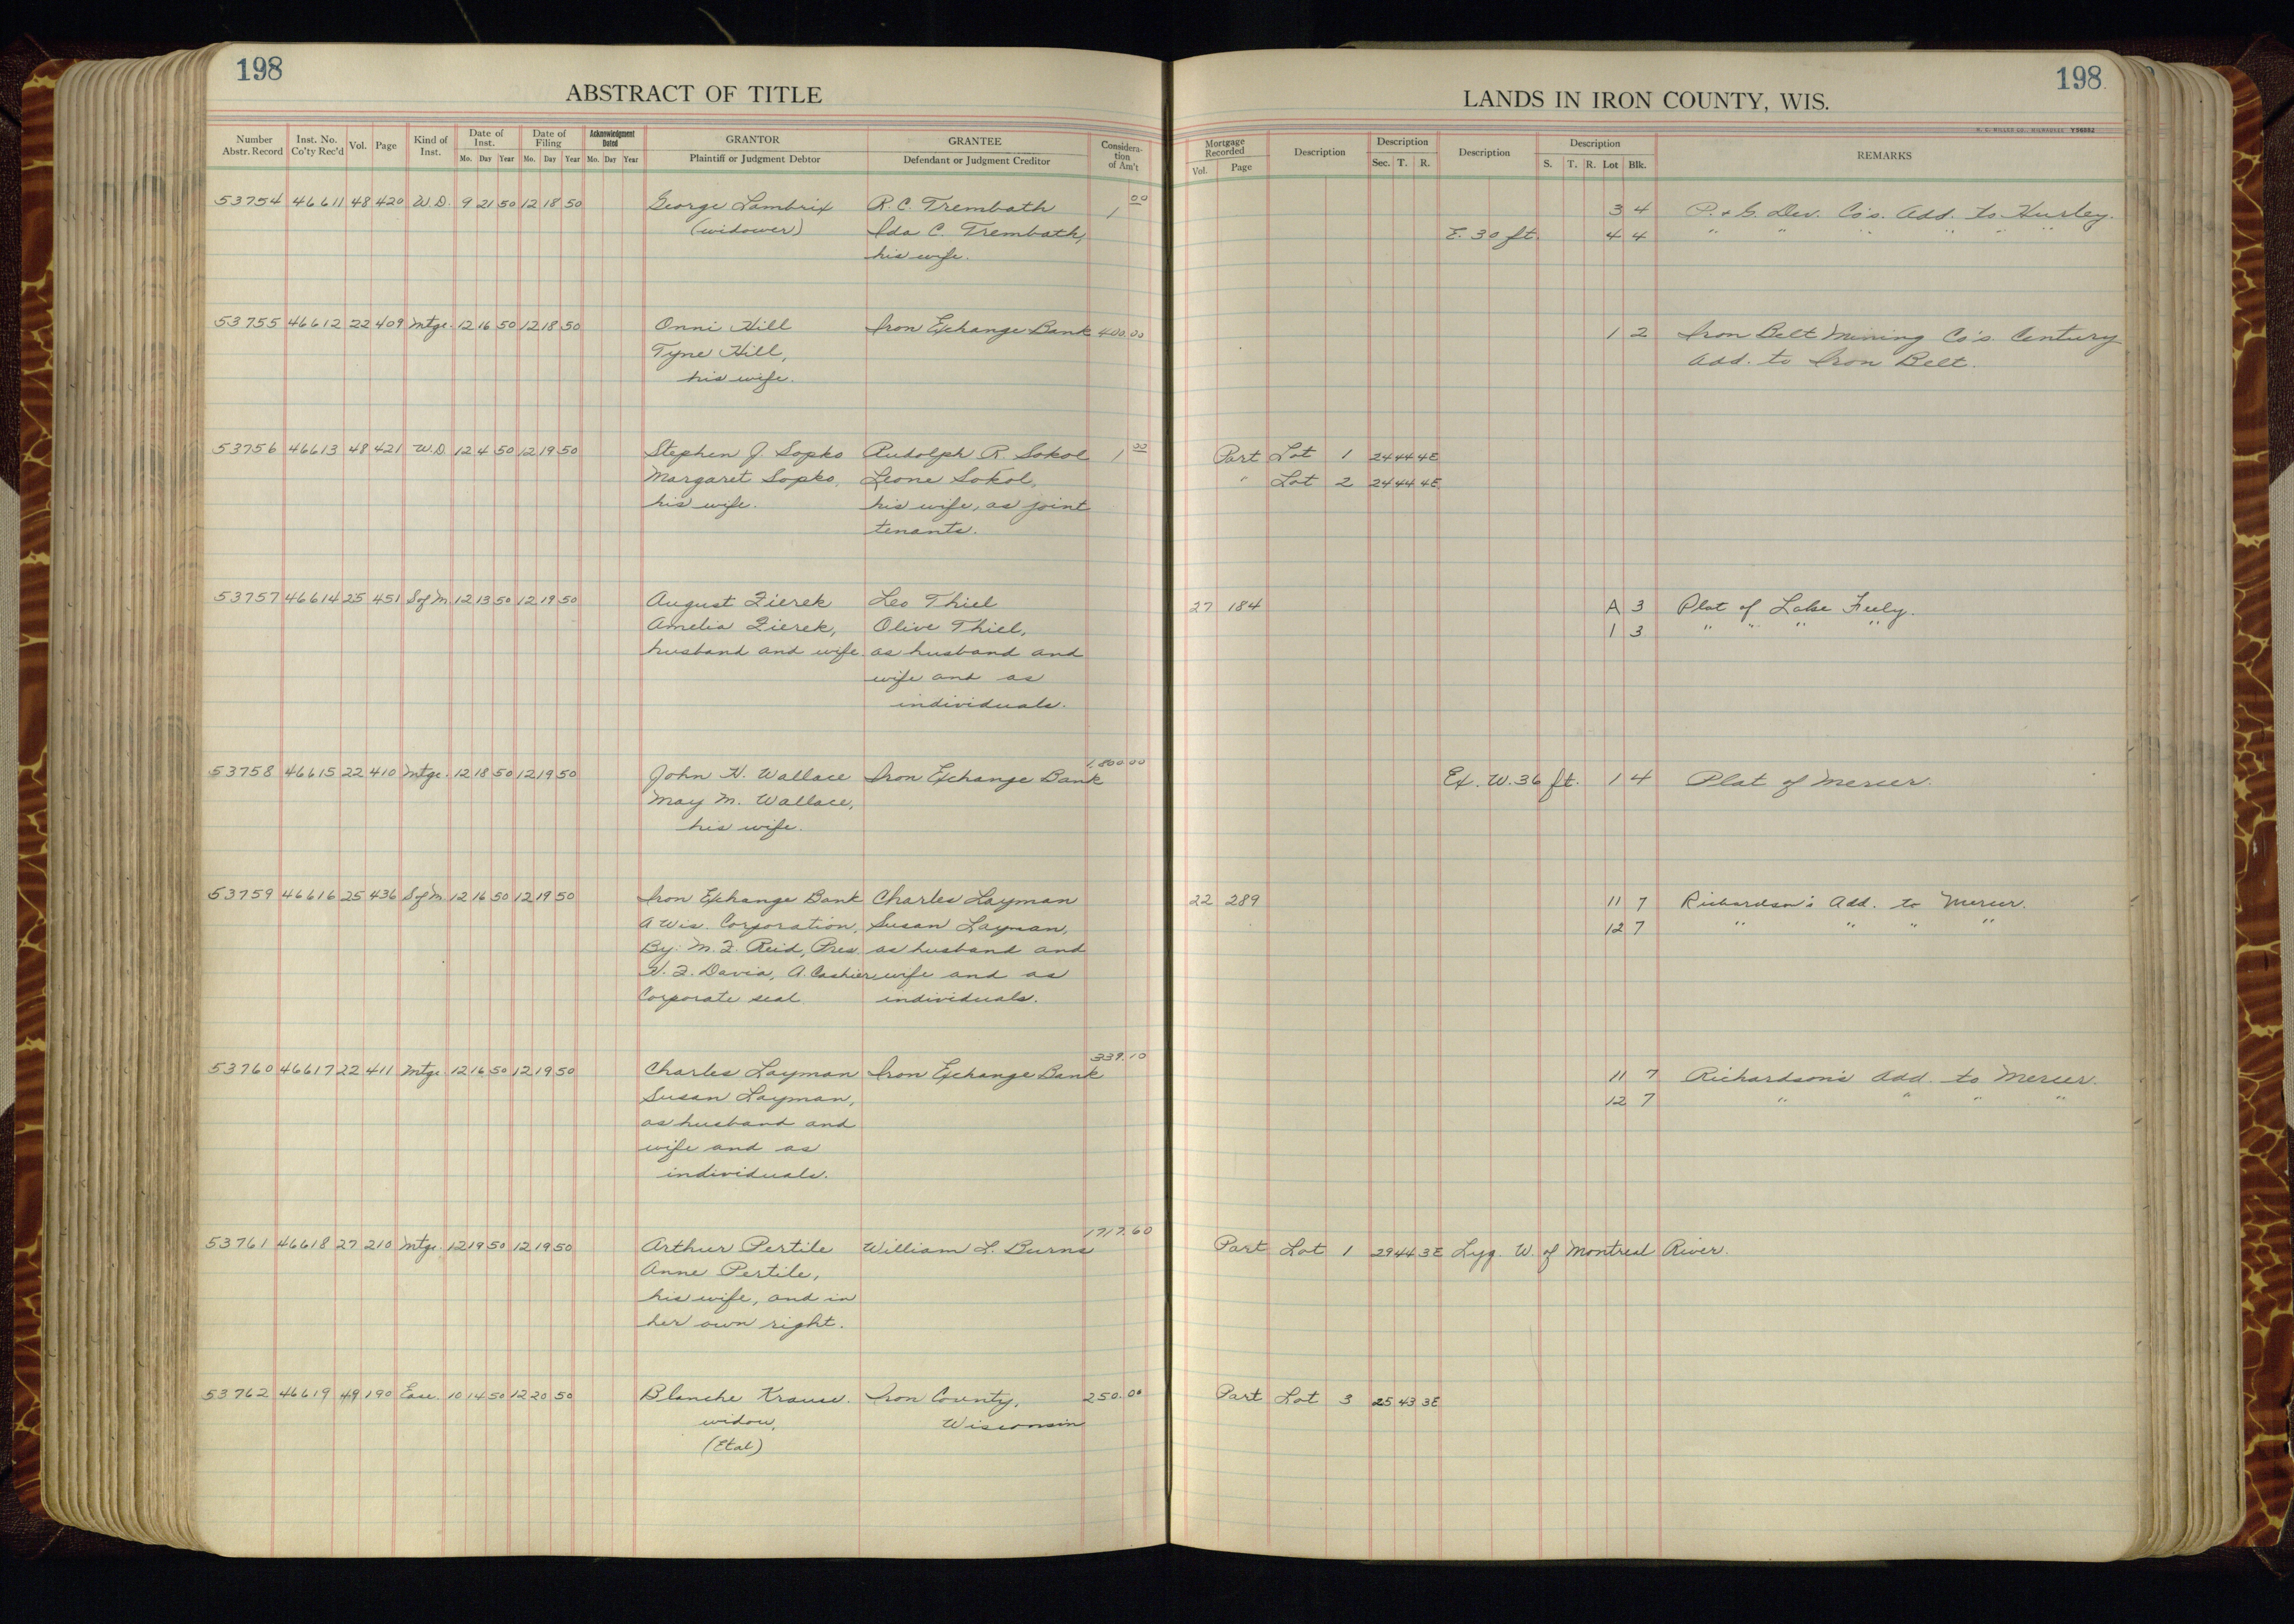 198
ABSTRACT OF TITLE
Number Abstr. Record Inst. No. Co'ty Rec'd Vol. Page Kind of Inst. Date of Inst. Mo. Day Year Date of Filing Mo. Day Year Acknowledgment Dated Mo. Day Year GRANTOR Plaintiff or Judgment Debtor GRANTEE Defendant or Judgment Creditor Consideration of Am't
53754 46611 48 420 W.D. 9 21 50 12 18 50 George Lambrix R. C. Trembath 1 00
(widower) Ida C. Trembath,
his wife.
53755 46612 22 409 Mtge. 12 16 50 12 18 50 Onni Hill Iron Exchange Bank 400.00
Tyne Hill,
his wife.
53756 46613 48 421 W.D. 12 4 50 12 19 50 Stephen J. Sopko Rudolph R. Sokol 1 00
Margaret Sopko, Leone Sokol,
his wife. his wife, as joint
tenants.
53757 46614 25 451 S of M 12 13 50 12 19 50 August Zierek Leo Thiel
Amelia Zierek, Olive Thiel,
husband and wife. as husband and
wife and as
individuals.
53758 46615 22 410 Mtge. 12 18 50 12 19 50 John H. Wallace Iron Exchange Bank 1,800.00
May M. Wallace,
his wife.
53759 46616 25 436 S of M 12 16 50 12 19 50 Iron Exchange Bank Charles Layman
A Wis. Corporation, Susan Layman,
By: M. Z. Reid, Pres. as husband and
W. Z. Davis, A. Cashier wife and as
Corporate seal. individuals.
53760 46617 22 411 Mtge. 12 16 50 12 19 50 Charles Layman Iron Exchange Bank 339.10
Susan Layman,
as husband and
wife and as
individuals.
53761 46618 27 210 Mtge. 12 19 50 12 19 50 Arthur Pertile William L. Burns 1717.60
Anne Pertile,
his wife, and in
her own right.
53762 46619 49 190 Ease. 10 14 50 12 20 50 Blanche Krause. Iron County, 250.00
widow, Wisconsin
(Etal)
198
LANDS IN IRON COUNTY, WIS.
H. C. MILLER CO., MILWAUKEE
Mortgage Recorded Vol. Page Description Description Sec. T. R. Description Description S. T. R. Lot Blk. REMARKS
3 4 P. & G. Dev. Co's. Add. to Hurley.
E. 30 ft. 4 4 " " " " " "
1 2 Iron Belt Mining Co's. Century
Add. to Iron Belt.
Part Lot 1 24 44 4E
" Lot 2 24 44 4E
27 184 A 3 Plat of Lake Feely.
1 3 " " " "
Ex. W. 36 ft. 1 4 Plat of Mercer.
22 289 11 7 Richardson's Add. to Mercer.
12 7 " " " "
11 7 Richardson's Add. to Mercer.
12 7 " " " "
Part Lot 1 29 44 3E Lyg. W. of Montreal River.
Part Lot 3 25 43 3E